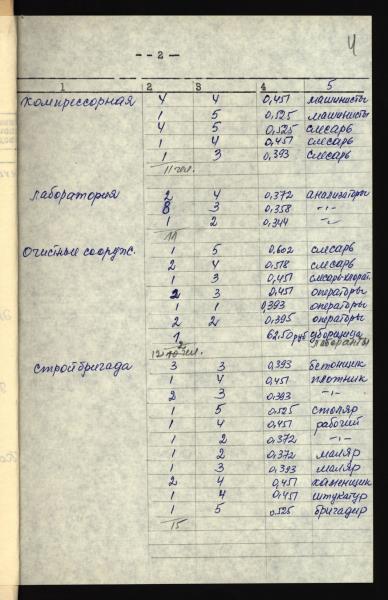 4
- - 2 -
1 2 3 4 5
Компрессорная 4 4 0,451 машинисты
1 5 0,525 машинисты
4 5 0,525 слесарь
1 4 0,451 слесарь
1 3 0,393 слесарь
11 чел.
лаборатория 2 4 0,372 анализаторы
8 3 0,358 -"-
1 2 0,344 -"-
11
Очистные сооруж. 1 5 0,602 слесарь
2 4 0,518 слесарь
1 3 0,451 слесарь-хлорат.
2 3 0,451 операторы
1 1 0,393 операторы
2 2 0,395 операторы
1 62.50 руб уборщица
12 чел. лаборанты
Стройбригада 3 3 0,393 бетонщик
1 4 0,451 плотник
2 3 0,393 -"-
1 5 0,525 столяр
1 4 0,451 рабочий
1 2 0,372 -"-
1 2 0,372 маляр
1 3 0,393 маляр
2 4 0,451 каменщик
1 4 0,451 штукатур
1 5 0,525 бригадир
15